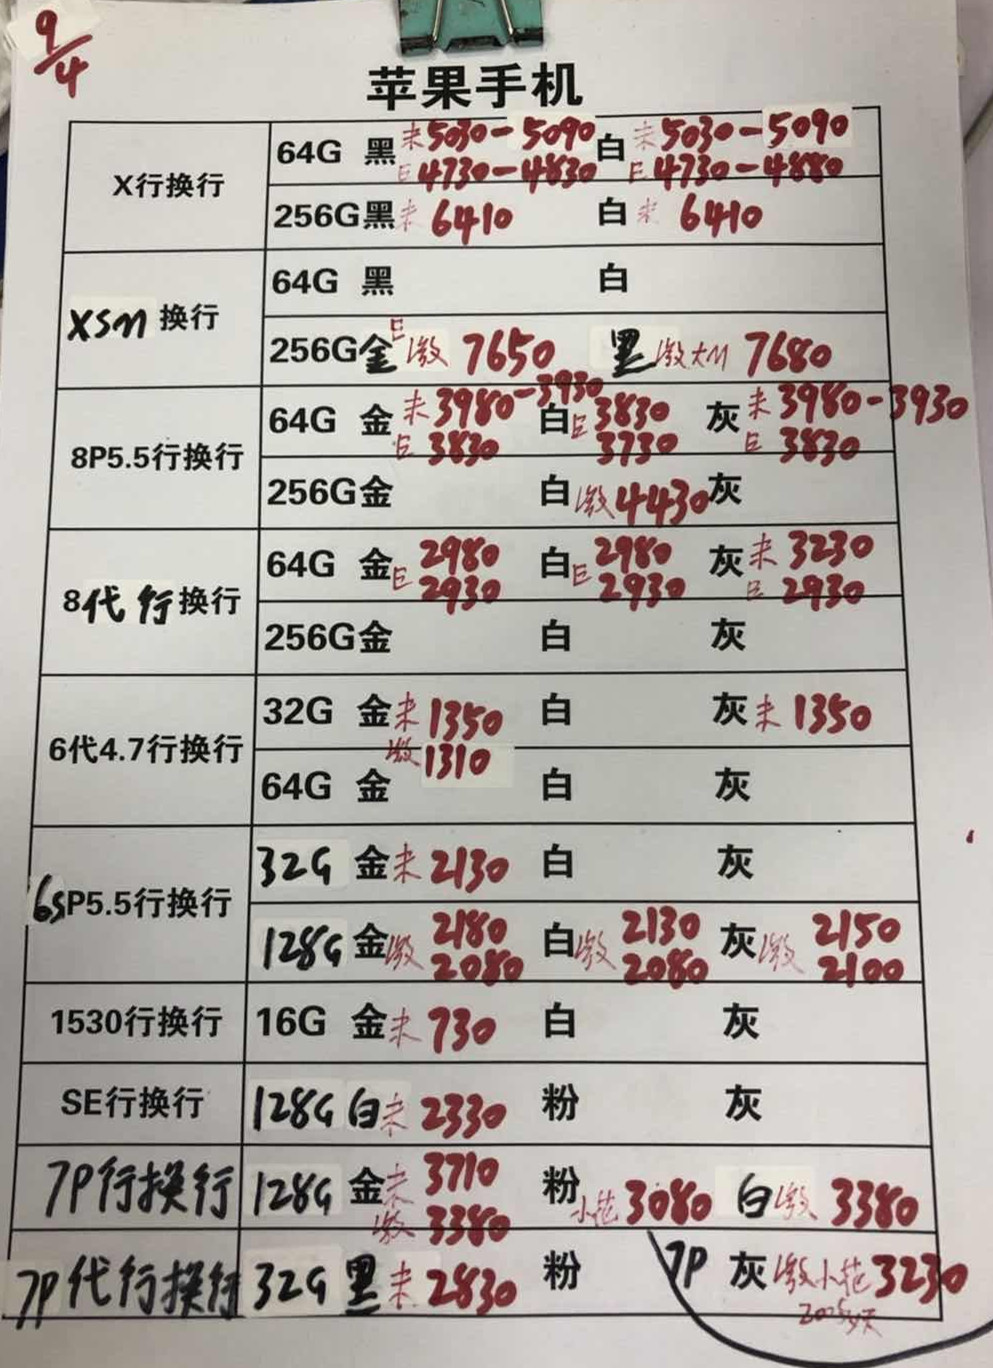 9/4
苹果手机
X行换行 64G 黑 未5030-5090 白 未5030-5090
E 4730-4830 E 4730-4880
256G黑 未 6410 白 未 6410
XSM 换行 64G 黑 白
256G金 E 激 7650 黑 激大M 7680
8P5.5行换行 64G 金 未3980-3930 白 E 3830 灰 未 3980-3930
E 3830 3730 E 3830
256G金 白 激4430 灰
8代行换行 64G 金 E 2980 白 E 2980 灰 未 3230
2930 2930 E 2930
256G金 白 灰
6代4.7行换行 32G 金 未 1350 白 灰 未 1350
激 1310
64G 金 白 灰
6SP5.5行换行 32G 金 未 2130 白 灰
128G 金 激 2180 白 激 2130 灰 激 2150
2080 2080 2100
1530行换行 16G 金 未 730 白 灰
SE行换行 128G 白 未 2330 粉 灰
7P行换行 128G 金 未 3710 粉 小花 3080 白 激 3380
激 3380
7P代行换行 32G 黑 未 2830 粉 7P 灰 激小花 3230